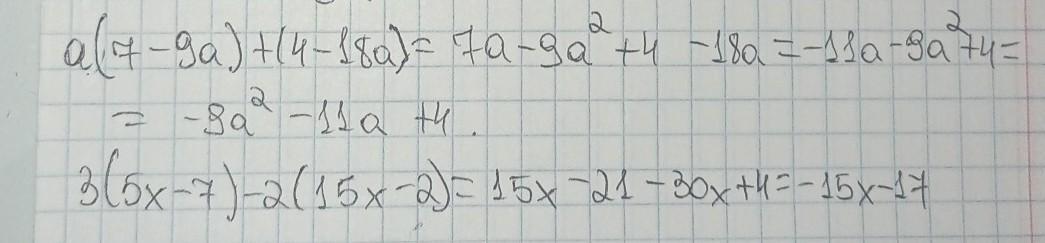 a(7-9a)+(4-18a)=7a-9a²+4 -18a=-11a-9a²+4=
= -9a² -11a +4.
3(5x-7)-2(15x-2)=15x-21-30x+4=-15x-17